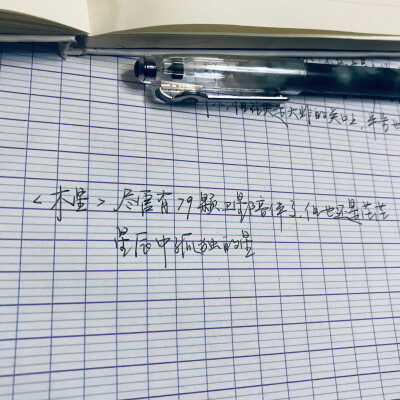 大的关口,
<木星>尽管有79颗卫星陪伴了,但也还是茫茫
星辰中孤独的星